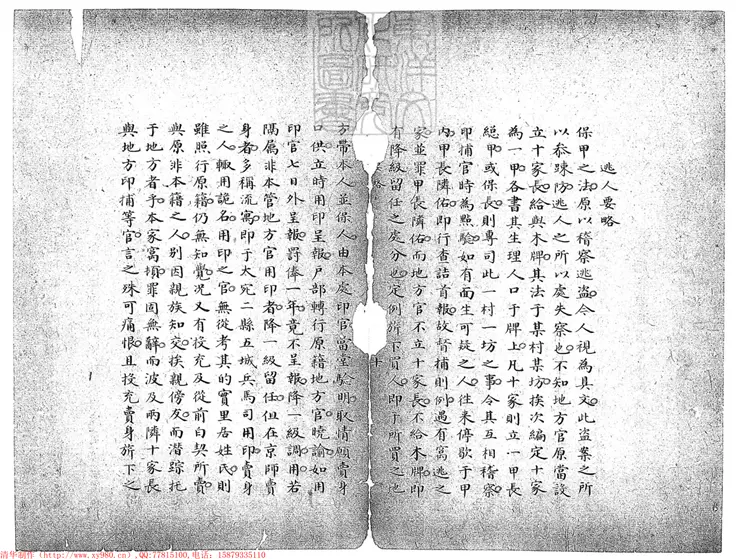 逃人要略
保甲之法原以稽察逃盜今人視為具文此盜案之所
以叅踈防逃人之所以處失察也不知地方官原當設
立十家長給與木牌其法于某村某坊挨次編定十家
為一甲各書其生理人口于牌上凡十家則立一甲長
絕甲或保長則專司此一村一坊之事令其互相稽察
印捕官時為照驗如有面生可疑之人往來停歇于甲
內甲長隣佑即行查詰首報故督捕則例遇有窩逃之
家並罪甲長隣佑而地方官不立十家長不給木牌即
有降級留任之處分也定例旂下買人即于所買之地
方帶本人並保人由本處印官當堂驗明取情願賣身
口供立時用印呈報戶部轉行原籍地方官曉諭如用
印官七日外呈報罰俸一年竟不呈報降一級調用若
隔屬非本管地方官用印者降一級留任但在京師賣
身者多稱流寓即于大宛二縣五城兵馬司用印賣身
之人輙用詭名用印之官無從考其的實里居姓氏則
雖照行原籍仍無知覺况又有投充及從前白契所賣
與原非本籍之人別因親族知交挨親傍友而潛踪托
于地方者乎本家窩頓罪固無辭而波及兩隣十家長
與地方印捕等官言之殊可痛恨且投充賣身旂下之
清华制作（http://www.xy980.cn）,QQ:77815100,电话：15879335110